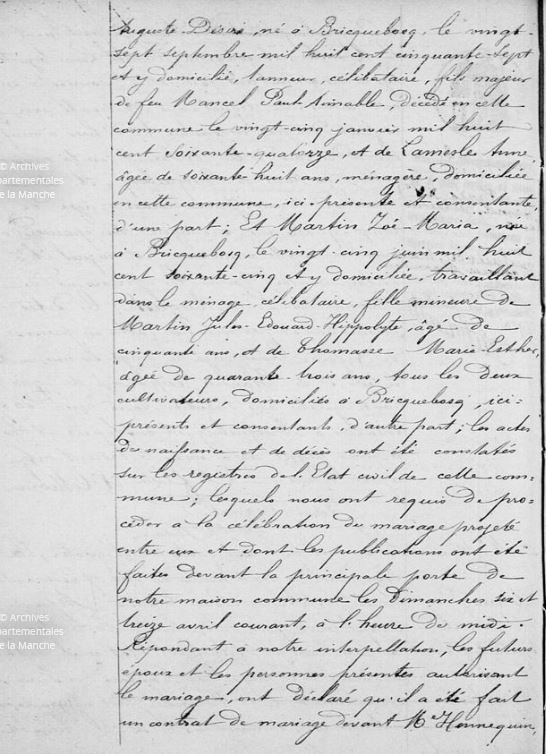 Auguste Désiré, né à Bricquebosq, le vingt-
sept septembre mil huit cent cinquante-sept
et y domicilié, tanneur, célibataire, fils majeur
de feu Mancel Paul Aimable, décédé en cette
commune le vingt-cinq janvier mil huit
cent soixante-quatorze, et de Lamesle
âgée de soixante huit ans, ménagère, domiciliée
en cette commune, ici-présente et consentante,
d'une part; Et Martin Zoé-Maria, née
à Bricquebosq, le vingt-cinq juin mil huit
cent soixante-cinq et y domiciliée, travaillant
dans le ménage, célibataire, fille mineure de
Martin Jules-Edouard-Hippolyte, âgé de
cinquante ans, et de Thomasse Marie-Esther,
âgée de quarante-trois ans, tous les deux
cultivateurs, domiciliés à Bricquebosq, ici=
présents et consentants, d'autre part; les actes
de naissance et de décès ont été constatés
sur les registres de l'Etat civil de cette com-
mune; lesquels nous ont requis de pro=
céder à la célébration du mariage projeté
entre eux et dont les publications ont été
faites devant la principale porte de
notre maison commune les Dimanches six et
treize avril courant, à l'heure de midi.
Répondant à notre interpellation, les futurs
époux et les personnes présentes autorisant
le mariage, ont déclaré qu'il a été fait
un contrat de mariage devant Me Hennequin,
© Archives
partementales
e la Manche
© Archives
partementales
e la Manche